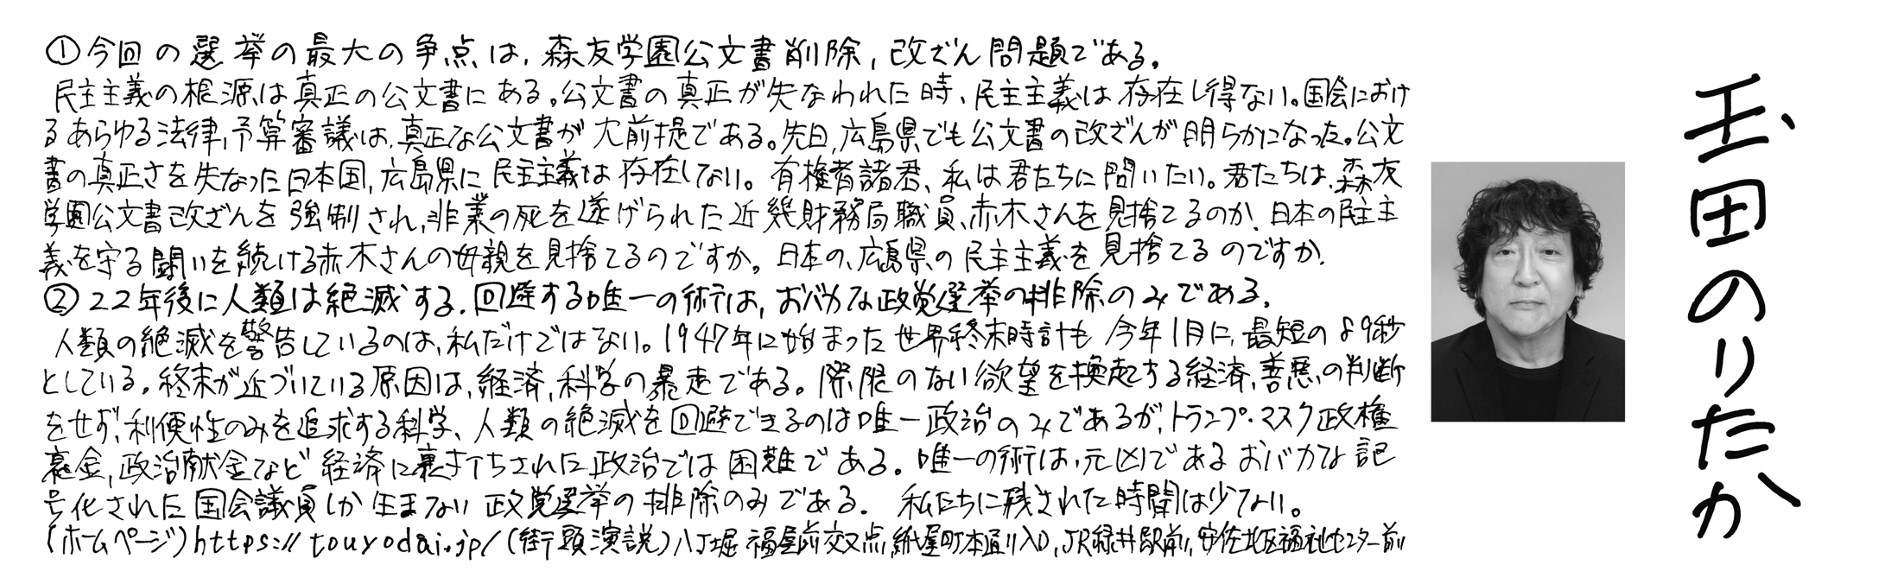 ①今回の選挙の最大の争点は、森友学園公文書削除、改ざん問題である。
民主主義の根源は真正の公文書にある。公文書の真正が失なわれた時、民主主義は存在し得ない。国会におけ
るあらゆる法律、予算審議は、真正な公文書が大前提である。先日、広島県でも公文書の改ざんが明らかになった。公文
書の真正さを失なった日本国、広島県に民主主義は存在しない。有権者諸君、私は君たちに問いたい。君たちは、森友
学園公文書改ざんを強制され、非業の死を遂げられた近畿財務局職員、赤木さんを見捨てるのか、日本の民主主
義を守る闘いを続ける赤木さんの母親を見捨てるのですか。日本の、広島県の民主主義を見捨てるのですか。
②22年後に人類は絶滅する。回避する唯一の術は、おバカな政党選挙の排除のみである。
人類の絶滅を警告しているのは、私だけではない。1947年に始まった世界終末時計も今年1月に、最短の89秒
としている。終末が近づいている原因は、経済、科学の暴走である。際限のない欲望を換起する経済、善悪の判断
をせず、利便性のみを追求する科学、人類の絶滅を回避できるのは唯一政治のみであるが、トランプ・マスク政権
裏金、政治献金など経済に裏打ちされた政治では困難である。唯一の術は、元凶であるおバカな記
号化された国会議員しか生まない政党選挙の排除のみである。 私たちに残された時間は少ない。
(ホームページ)https://touyodai.jp/(街頭演説)八丁堀福屋前交叉点、紙屋町本通り入口、JR緑井駅前、安佐北区福祉センター前
玉田のりたか